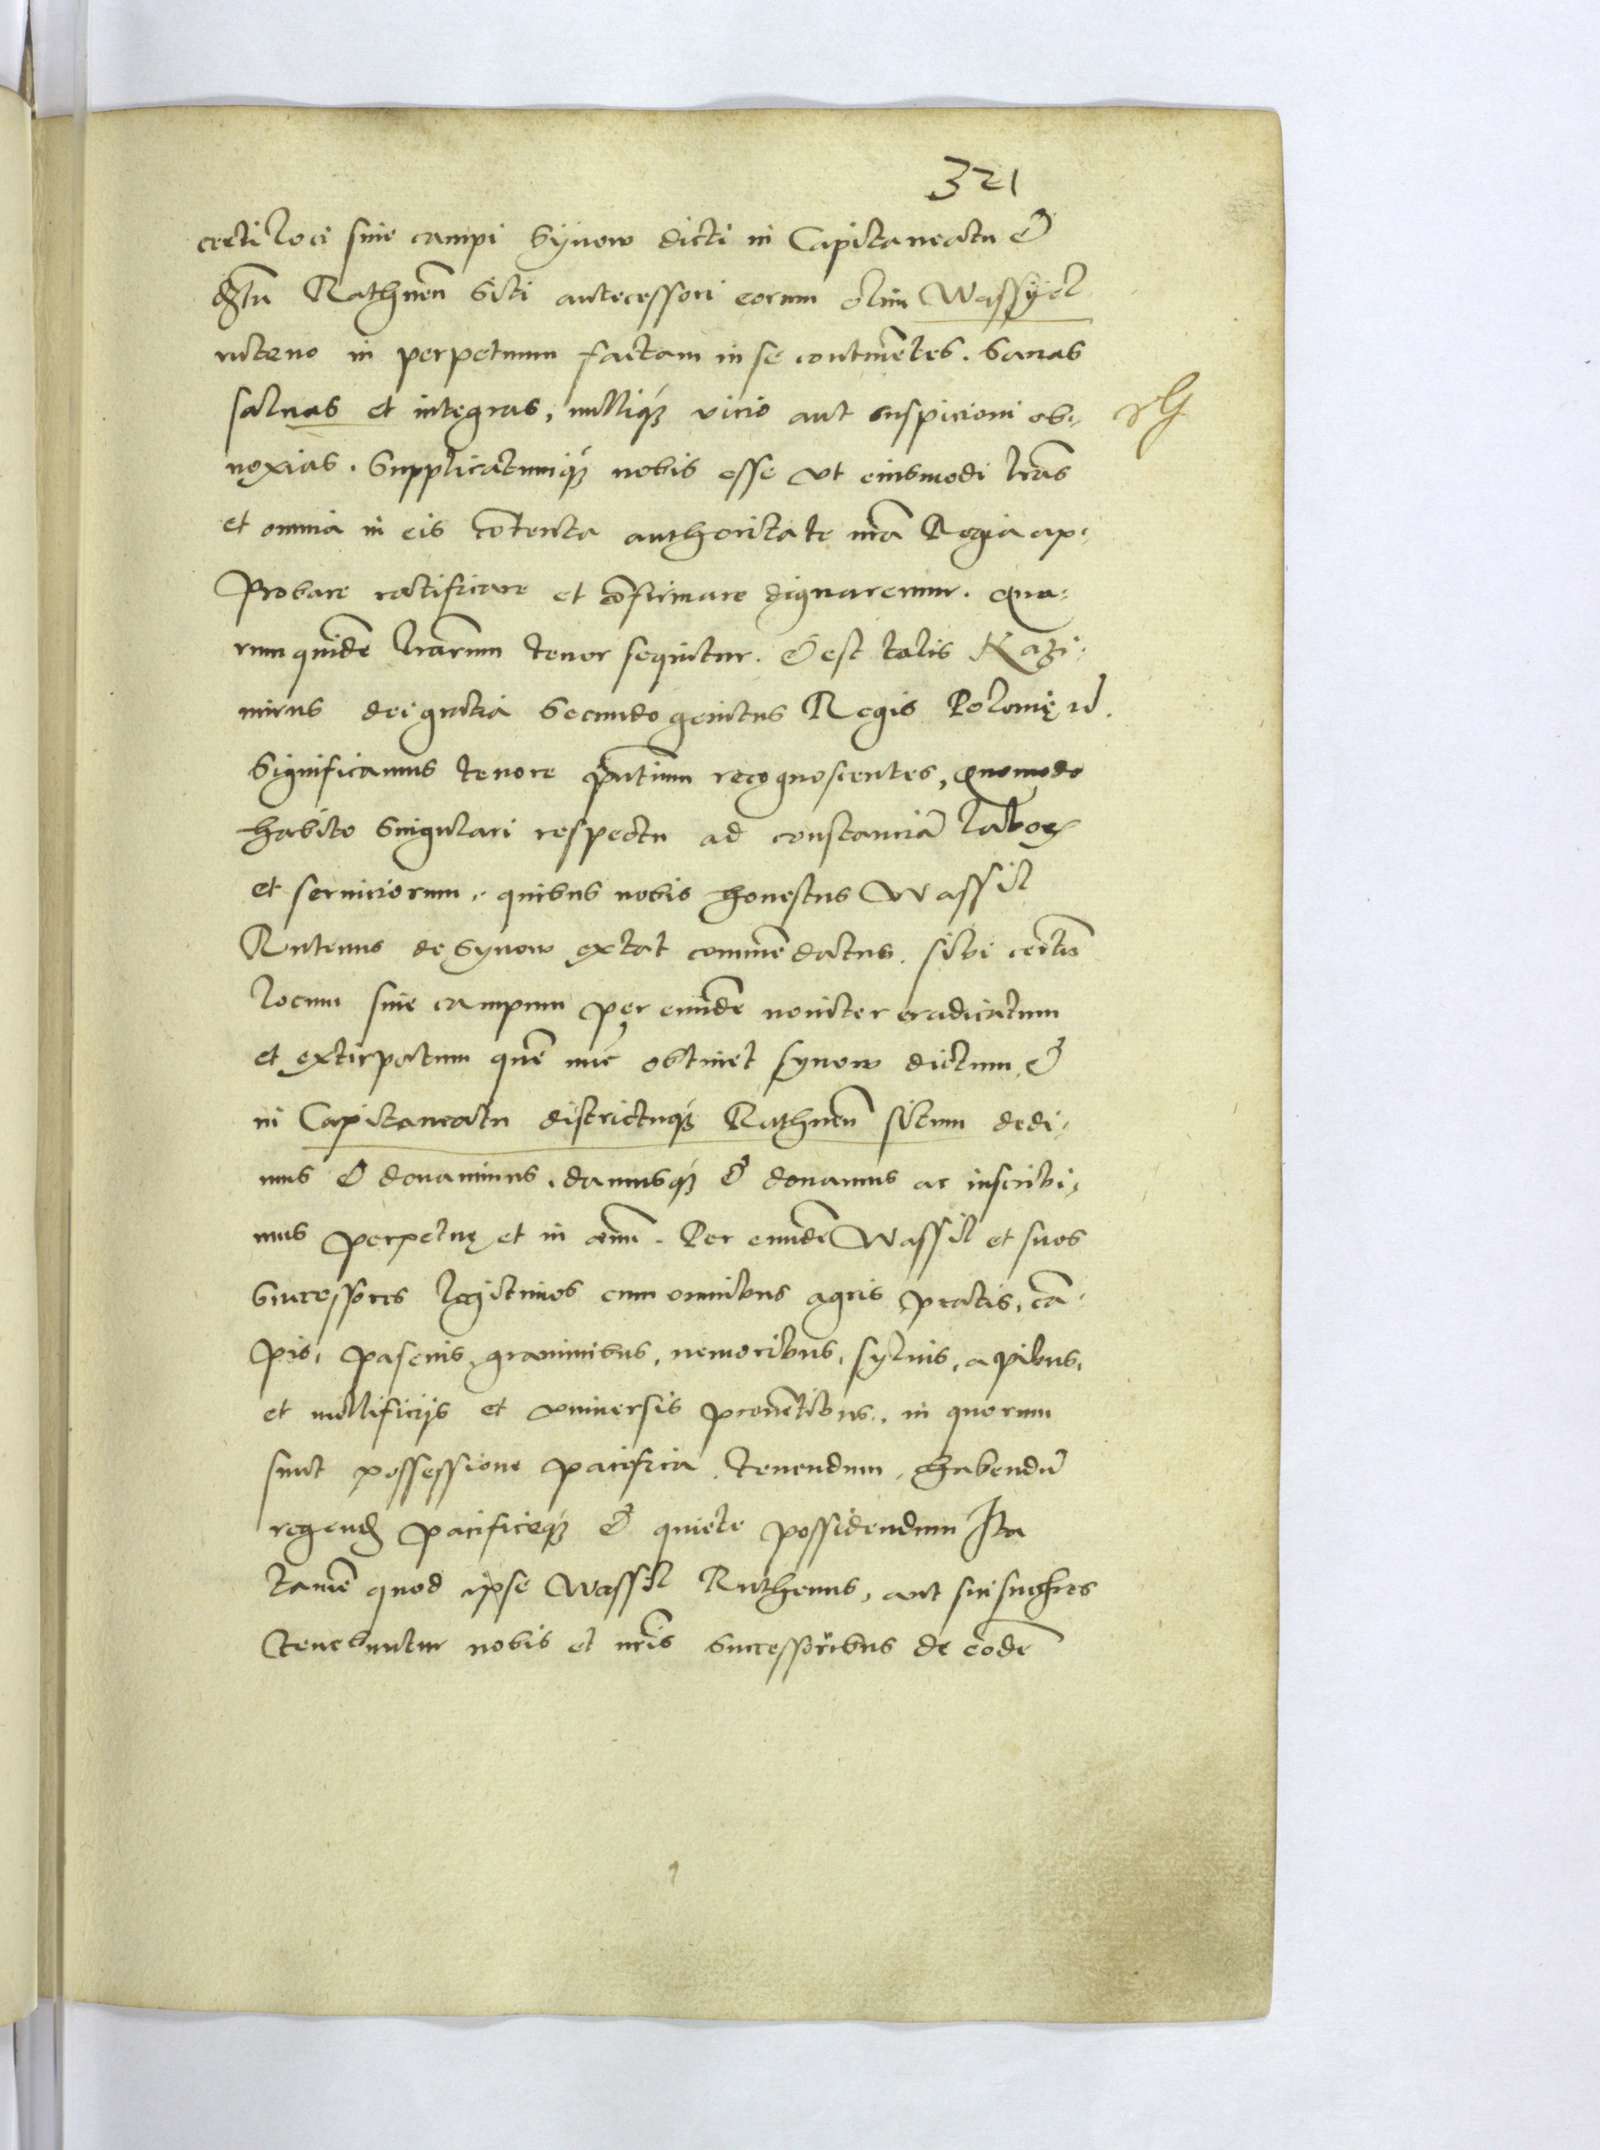 321
certi loci siue campi Synow dicti in Capitaneatu &
dZtu Rathneñ siti antecessori eorum olim Wassyel
ruteno in perpetuum factam in se continẽtes. Sanas
saluas et integras, nulliq́ue vicio aut suspicioni ob-
noxias. Supplicatumq́ue nobis esse vt eiusmodi lr̃as
et omnia in eis cõtenta authoritate nr̃a Regia ap-
probare ratificare et cõfirmare dignaremur. Qua-
rum quidẽ lr̃arum tenor sequitur. & est talis Kazi-
mirus dei gratia Secundo genitus Regis Polonię
Significamus tenore pñtium recognoscentes, Quomodo
habito singulari respectu ad constanciã labor
et seruiciorum, quibus nobis honestus Wassil
Rutenus de Synow extat commẽdatus. sibi certũ
locum siue campum per eundẽ nouiter eradicatum
et extirpatum quẽ nũc obtinet Synow dictum &
in Capitaneatu districtuq́ue Rathneñ situm dedi-
mus & donauimus, damusq́ue & donamus ac inscribi-
mus perpetuę et in æuũ. Per eundẽ Wassil et suos
Successores legitimos cum omnibus agris pratis, cã-
pis, pascuis, graminibus, nemoribus, syluis, apibus,
et mellificijs et vniuersis prouẽtibus, in quorum
sunt possessione pacifica. tenendum, habendũ
regend pacificeq́ue & quiete possidendum Ita
tamẽ quod ipse Wassil Ruthenus, aut sui
tenebuntur nobis et nr̃is Successoribus de eodẽ